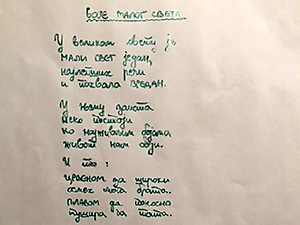 БОЈЕ МАЛОГ СВЕТА
У великом свету је
мали свет један,
најлепших речи
и похвала вредан.
У њему заиста
неко постоји
ко најживљим бојама
живот нам боји.
И то:
црвеном да широки
осмех мога брата.
плавом да поносно
тата.